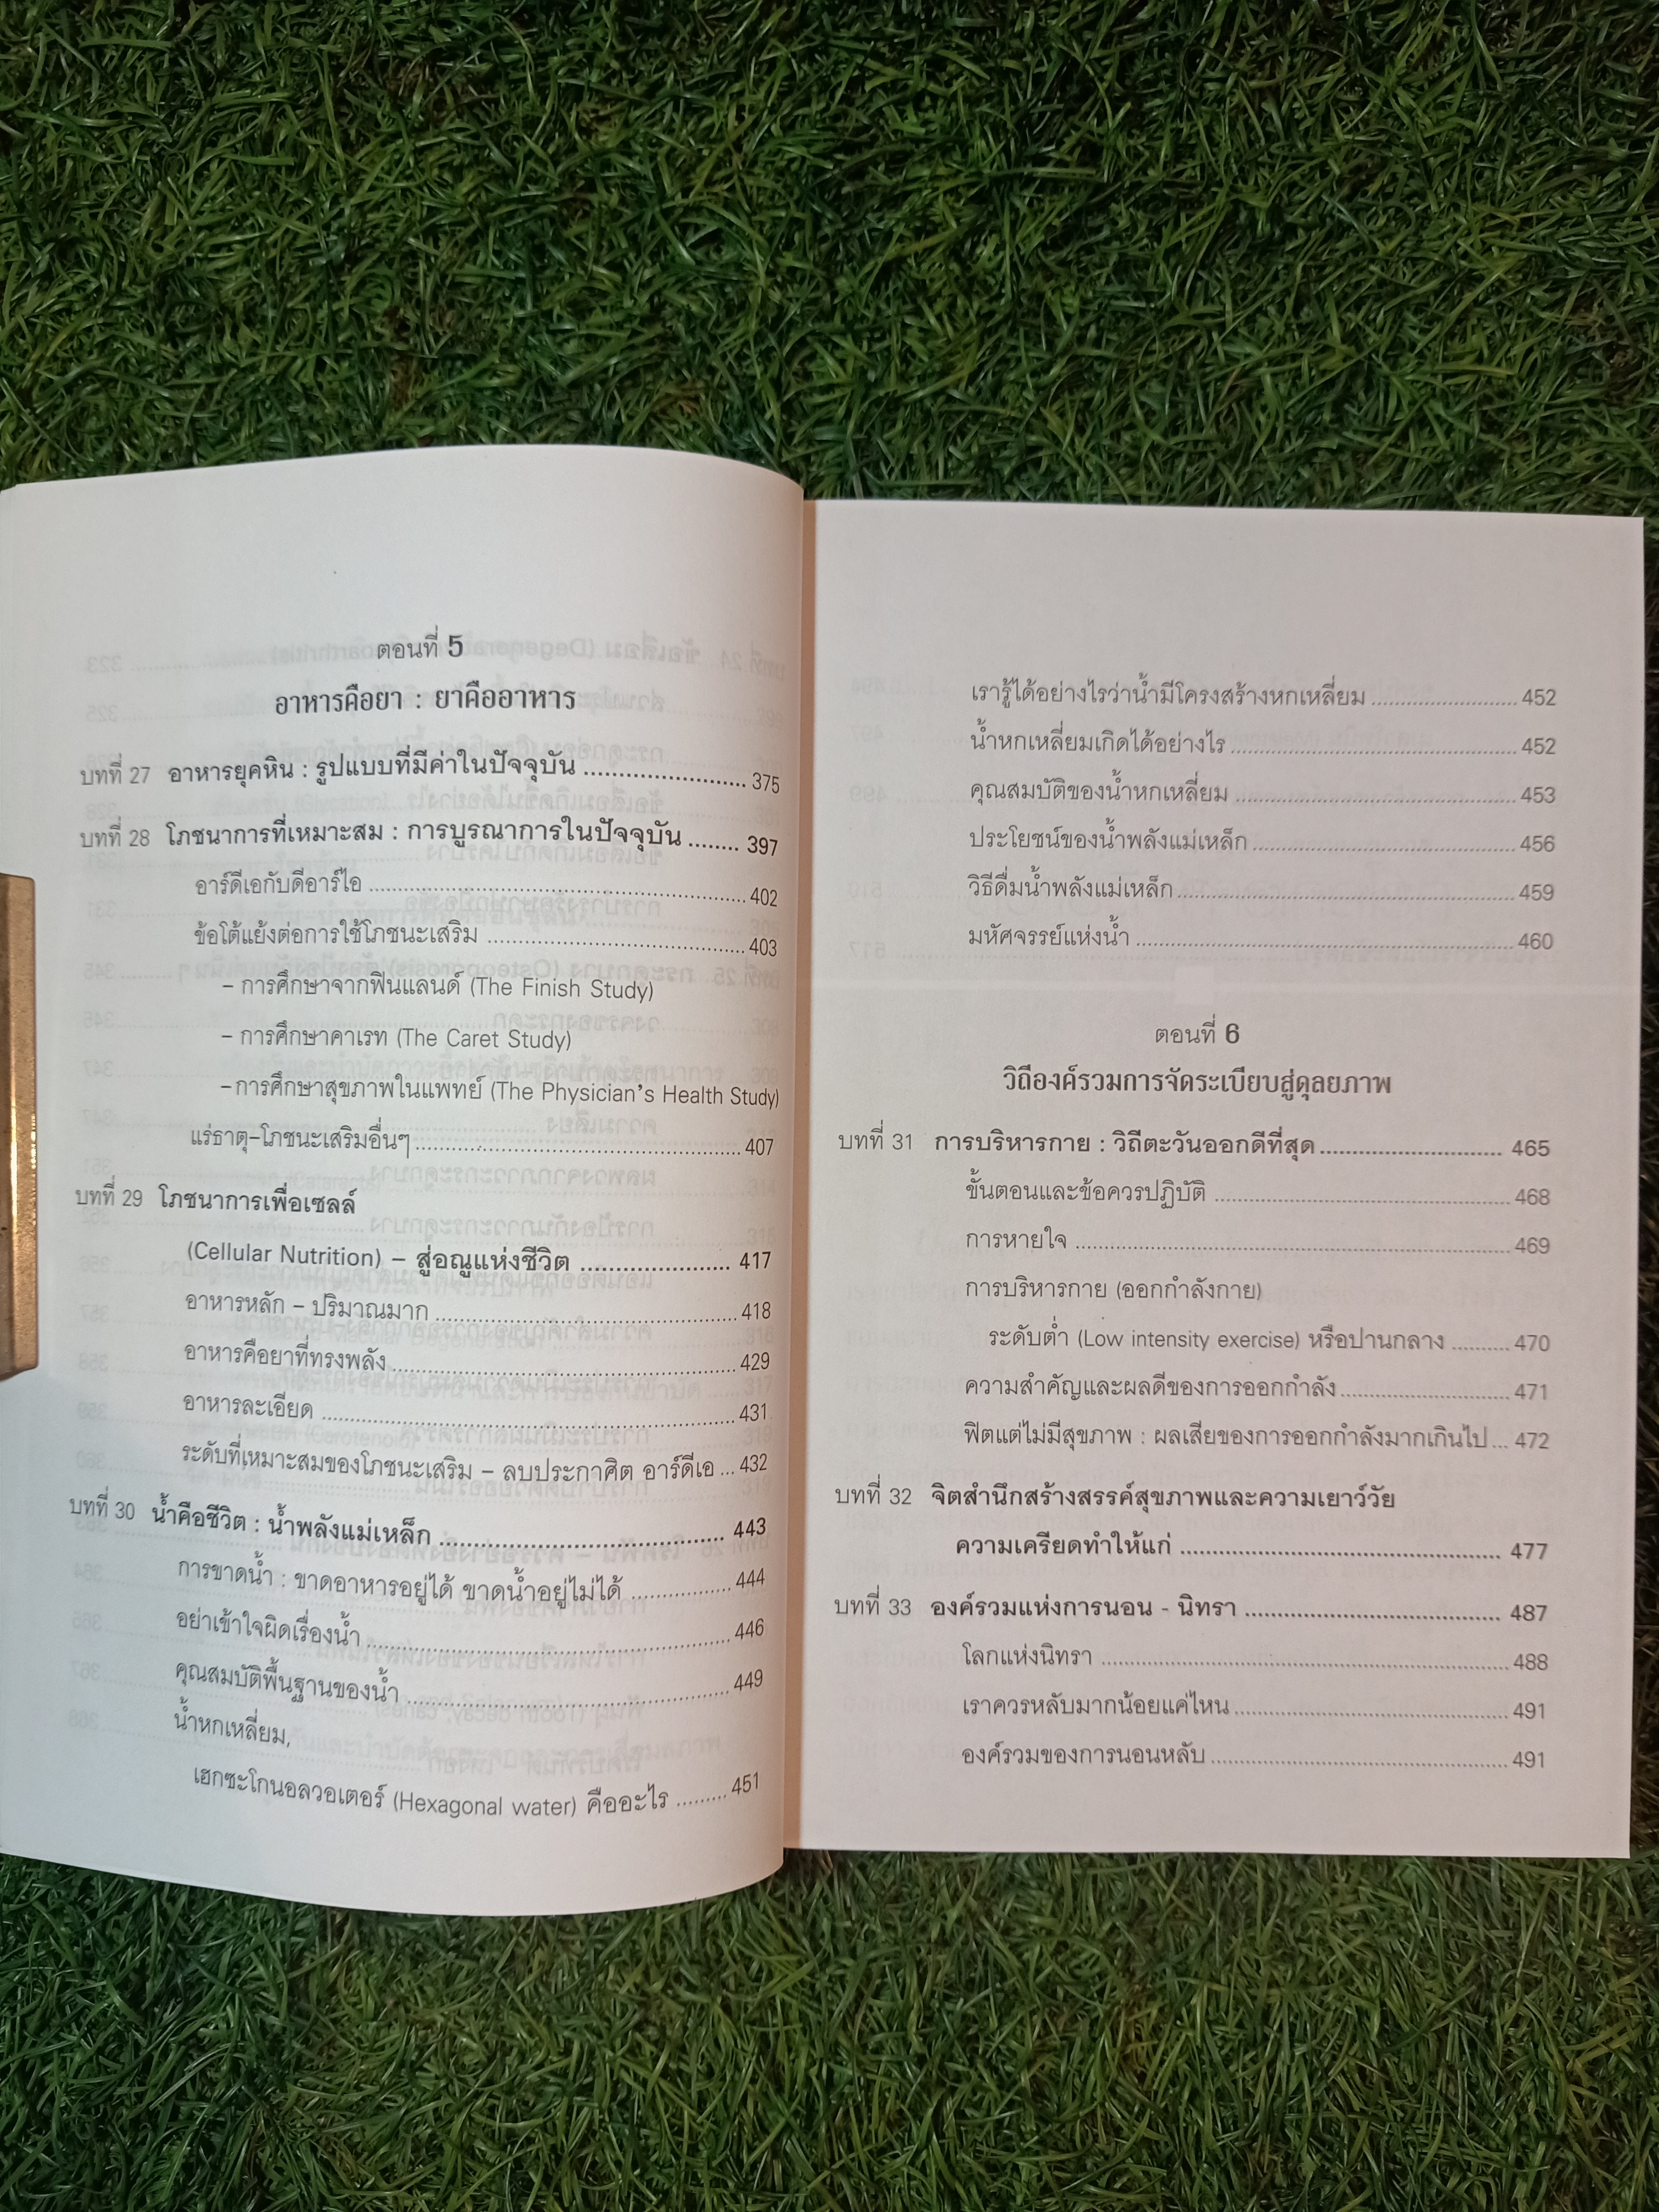 ตอนที่ 5
อาหารคือยา : ยาคืออาหาร
บทที่ 27 อาหารยุคหิน : รูปแบบที่มีค่าในปัจจุบัน ........................ 375
บทที่ 28 โภชนาการที่เหมาะสม : การบูรณาการในปัจจุบัน ........ 397
อาร์ดีเอกับดีอาร์ไอ ........................ 402
ข้อโต้แย้งต่อการใช้โภชนะเสริม ........................ 403
– การศึกษาจากฟินแลนด์ (The Finish Study)
– การศึกษาคาเรท (The Caret Study)
–การศึกษาสุขภาพในแพทย์ (The Physician's Health Study)
แร่ธาตุ-โภชนะเสริมอื่นๆ ........................ 407
บทที่ 29 โภชนาการเพื่อเซลล์
(Cellular Nutrition) – สู่อณูแห่งชีวิต ........................ 417
อาหารหลัก – ปริมาณมาก ........................ 418
อาหารคือยาที่ทรงพลัง ........................ 429
อาหารละเอียด ........................ 431
ระดับที่เหมาะสมของโภชนะเสริม – ลบประกาศิต อาร์ดีเอ ... 432
บทที่ 30 น้ำคือชีวิต : น้ำพลังแม่เหล็ก ........................ 443
การขาดน้ำ : ขาดอาหารอยู่ได้ ขาดน้ำอยู่ไม่ได้ ............... 444
อย่าเข้าใจผิดเรื่องน้ำ ........................ 446
คุณสมบัติพื้นฐานของน้ำ ........................ 449
น้ำหกเหลี่ยม,
เฮกซะโกนอลวอเตอร์ (Hexagonal water) คืออะไร ......... 451
เรารู้ได้อย่างไรว่าน้ำมีโครงสร้างหกเหลี่ยม ........................ 452
น้ำหกเหลี่ยมเกิดได้อย่างไร ........................ 452
คุณสมบัติของน้ำหกเหลี่ยม ........................ 453
ประโยชน์ของน้ำพลังแม่เหล็ก ........................ 456
วิธีดื่มน้ำพลังแม่เหล็ก ........................ 459
มหัศจรรย์แห่งน้ำ ........................ 460
ตอนที่ 6
วิถีองค์รวมการจัดระเบียบสู่ดุลยภาพ
บทที่ 31 การบริหารกาย : วิถีตะวันออกดีที่สุด ........................ 465
ขั้นตอนและข้อควรปฏิบัติ ........................ 468
การหายใจ ........................ 469
การบริหารกาย (ออกกำลังกาย)
ระดับต่ำ (Low intensity exercise) หรือปานกลาง .......... 470
ความสำคัญและผลดีของการออกกำลัง ........................ 471
ฟิตแต่ไม่มีสุขภาพ : ผลเสียของการออกกำลังมากเกินไป ... 472
บทที่ 32 จิตสำนึกสร้างสรรค์สุขภาพและความเยาว์วัย
ความเครียดทำให้แก่ ........................ 477
บทที่ 33 องค์รวมแห่งการนอน - นิทรา ........................ 487
โลกแห่งนิทรา ........................ 488
เราควรหลับมากน้อยแค่ไหน ........................ 491
องค์รวมของการนอนหลับ ........................ 491